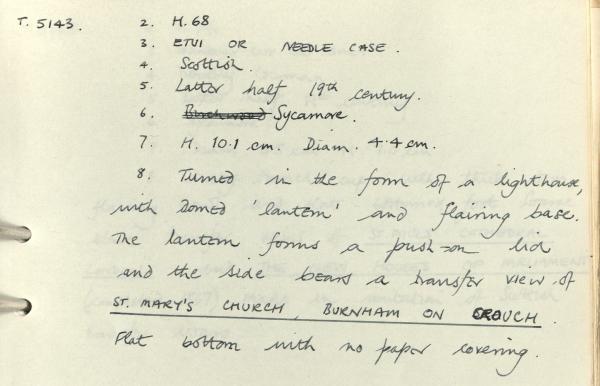 T. 5143. 2. H.68
3. ETUI OR NEEDLE CASE.
4. Scottish.
5. Latter half 19th century.
6. Birchwood Sycamore.
7. H. 10.1 cm. Diam. 4.4 cm.
8. Turned in the form of a lighthouse,
with domed 'lantern' and flairing base.
The lantern forms a push-on lid
and the side bears a transfer view of
ST. MARY'S CHURCH, BURNHAM ON CROUCH.
Flat bottom with no paper covering.